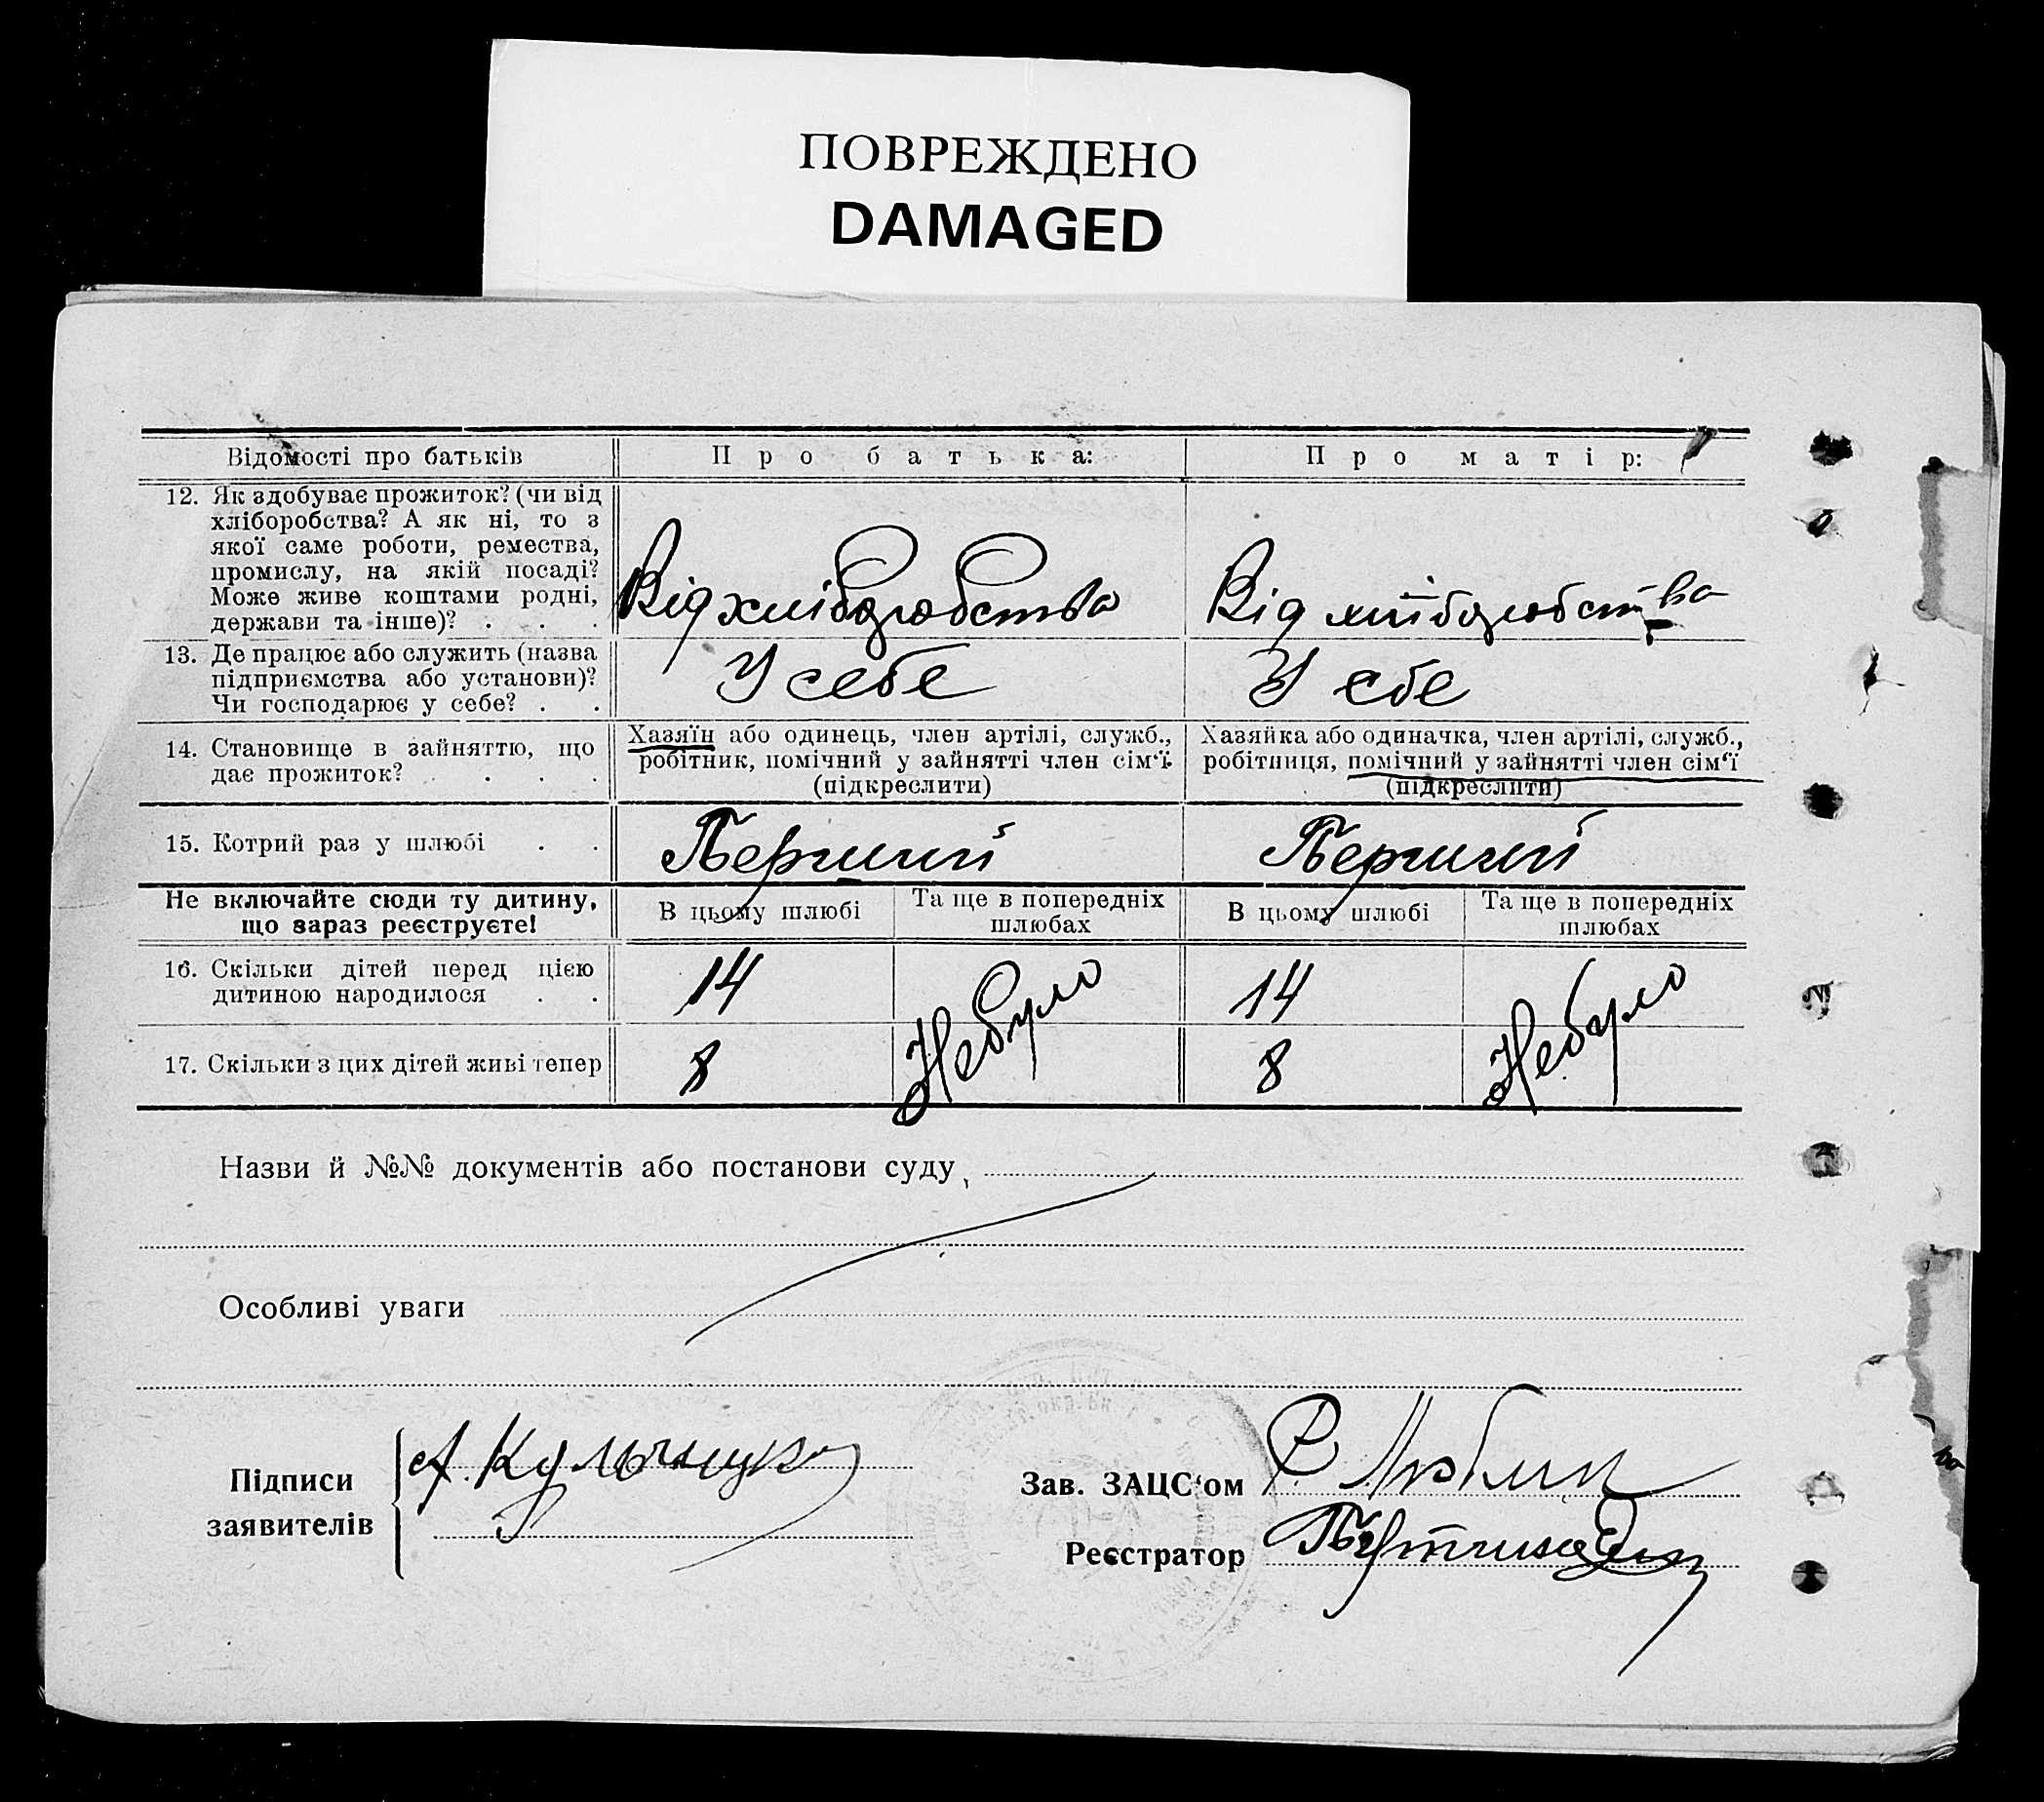 ПОВРЕЖДЕНО
DAMAGED
Відомості про батьків
Про батька:
Про матір:
12. Як здобуває прожиток? (чи від
хліборобства? А як ні, то з
якої саме роботи, ремества,
промислу, на якій посаді?
Може живе коштами родні,
держави та інше)? . . .
Від хліборобства
Від хліборобства
13. Де працює або служить (назва
підприємства або установи)?
Чи господарює у себе? . .
У себе
У себе
14. Становище в зайняттю, що
дає прожиток? . . . .
Хазяїн або одинець, член артілі, служб.,
робітник, помічний у зайнятті член сім‘ї
(підкреслити)
Хазяйка або одиначка, член артілі, служб.,
робітниця, помічний у зайнятті член сім‘ї
(підкреслити)
15. Котрий раз у шлюбі . .
Перший
Перший
Не включайте сюди ту дитину,
що зараз реєструєте!
В цьому шлюбі
Та ще в попередніх
шлюбах
В цьому шлюбі
Та ще в попередніх
шлюбах
16. Скільки дітей перед цією
дитиною народилося . .
14
Небуло
14
Небуло
17. Скільки з цих дітей живі тепер
8
8
Назви й №№ документів або постанови суду,
Особливі уваги
Підписи
заявителів
А.
Зав. ЗАЦС‘ом
Реєстратор